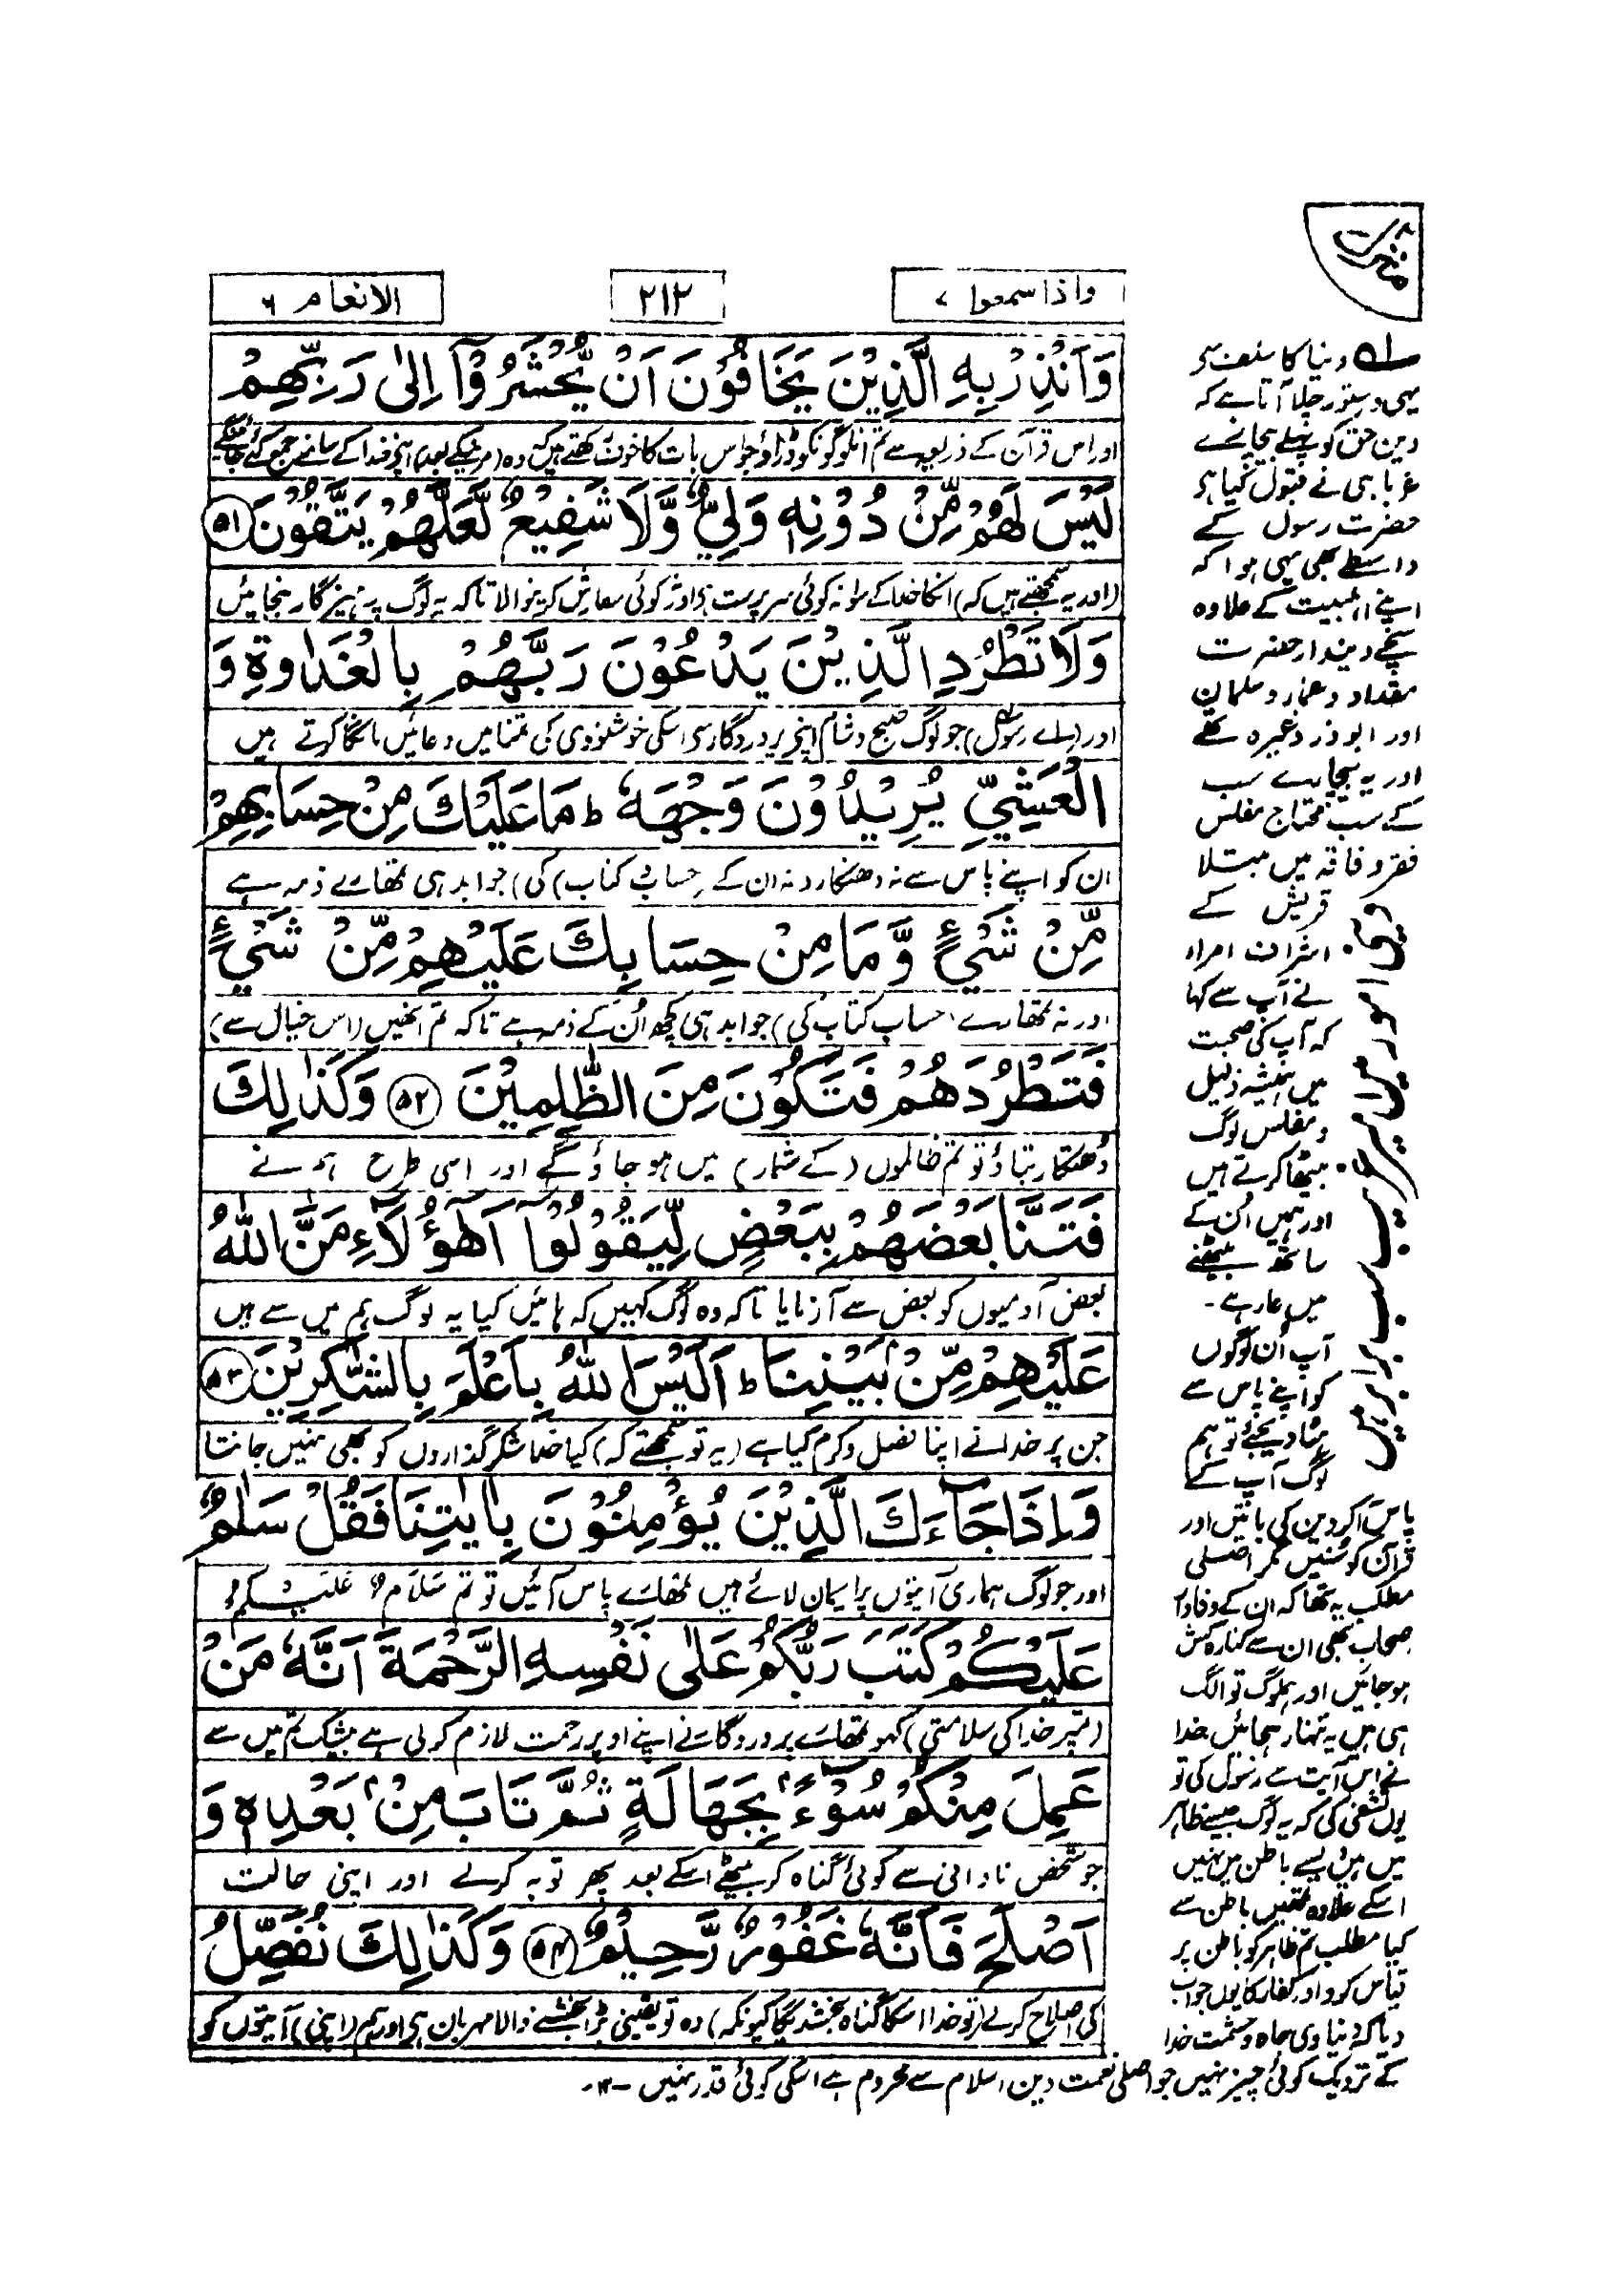 واذاسمعوا ۷
۲۱۲
الانعام ۶
وَاَنْذِرْ بِهِ الَّذِيْنَ يَخَافُوْنَ اَنْ يُّحْشَرُوْٓا اِلٰى رَبِّهِمْ
اور اس قرآن کے ذریعہ سے تم ان لوگونکو ڈراؤ جو اس بات کا خوف رکھتے ہیں کہ وہ (مرنیکے بعد) اپنے خدا کے سامنے جمع کئے جائینگے
لَيْسَ لَهُمْ مِّنْ دُوْنِهٖ وَلِيٌّ وَّلَا شَفِيْعٌ لَّعَلَّهُمْ يَتَّقُوْنَ ۵۱
(اور یہ سمجھتے ہیں کہ) انکا خدا کے سوا نہ کوئی سرپرست ہے اور نہ کوئی سفارش کرنیوالا تاکہ یہ لوگ پرہیزگار بنجائیں
وَلَا تَطْرُدِ الَّذِيْنَ يَدْعُوْنَ رَبَّهُمْ بِالْغَدٰوةِ وَ
اور (اے رسول) جو لوگ صبح و شام اپنے پروردگار سے اسکی خوشنودی کی تمنا میں دعائیں مانگا کرتے ہیں
الْعَشِيِّ يُرِيْدُوْنَ وَجْهَهٗ ط مَا عَلَيْكَ مِنْ حِسَابِهِمْ
ان کو اپنے پاس سے نہ دھتکارو نہ ان کے (حساب کتاب کی) جوابدہی تمھارے ذمہ ہے
مِّنْ شَيْءٍ وَّمَا مِنْ حِسَابِكَ عَلَيْهِمْ مِّنْ شَيْءٍ
اور نہ تمھارے (حساب کتاب کی) جوابدہی کچھ اُن کے ذمہ ہے تاکہ تم انھیں (اس خیال سے)
فَتَطْرُدَهُمْ فَتَكُوْنَ مِنَ الظّٰلِمِيْنَ ۵۲ وَكَذٰلِكَ
دُھتکار بتاؤ تو تم ظالموں (کے شمار) میں ہو جاؤ گے اور اسی طرح ہم نے
فَتَنَّا بَعْضَهُمْ بِبَعْضٍ لِّيَقُوْلُوْٓا اَهٰٓؤُلَآءِ مَنَّ اللّٰهُ
بعض آدمیوں کو بعض سے آزمایا تاکہ وہ لوگ کہیں کہ ہائیں کیا یہ لوگ ہم میں سے ہیں
عَلَيْهِمْ مِّنْۢ بَيْنِنَا ط اَلَيْسَ اللّٰهُ بِاَعْلَمَ بِالشّٰكِرِيْنَ ۵۳
جن پر خدا نے اپنا فضل و کرم کیا ہے (یہ تو سمجھتے کہ) کیا خدا شکر گذاروں کو بھی نہیں جانتا
وَاِذَا جَآءَكَ الَّذِيْنَ يُؤْمِنُوْنَ بِاٰيٰتِنَا فَقُلْ سَلٰمٌ
اور جو لوگ ہماری آیتوں پر ایمان لائے ہیں تمھارے پاس آئیں تو تم سَلَامٌ عَلَیْکُمْ
عَلَيْكُمْ كَتَبَ رَبُّكُمْ عَلٰى نَفْسِهِ الرَّحْمَةَ اَنَّهٗ مَنْ
(تمپر خدا کی سلامتی) کہو تمھارے پروردگار نے اپنے اوپر رحمت لازم کر لی ہے بیشک تم میں سے
عَمِلَ مِنْكُمْ سُوْٓءًۢا بِجَهَالَةٍ ثُمَّ تَابَ مِنْۢ بَعْدِهٖ وَ
جو شخص نادانی سے کوئی گناہ کر بیٹھے اسکے بعد پھر توبہ کرلے اور اپنی حالت
اَصْلَحَ فَاَنَّهٗ غَفُوْرٌ رَّحِيْمٌ ۵۴ وَكَذٰلِكَ نُفَصِّلُ
کی اصلاح کرلے (تو خدا اسکا گناہ بخشدیگا کیونکہ) وہ تو یقینی بڑا بخشنے والا مہربان ہے اور ہم (اپنی) آیتوں کو
دنیا کا
یہی دستور چلا آتا ہے کہ
دین حق کو پہلے پہلے
غربا ہی نے قبول کیا ہے
حضرت رسول کے
واسطے بھی یہی ہوا کہ
اپنے اہلبیت کے علاوہ
سچے دیندار حضرت
مقداد و عمار و سلمان
اور ابوذر وغیرہ تھے
اور یہ بیچارے سب
کے سب محتاج مفلس
فقر و فاقہ میں مبتلا
قریش کے
اشراف امراء
نے آپ سے کہا
کہ آپ کی صحبت
میں ہمیشہ ذلیل
و مفلس لوگ
بیٹھا کرتے ہیں
اور ہمیں اُن کے
ساتھ بیٹھنے
میں عار ہے۔
آپ اُن لوگوں
کو اپنے پاس سے
ہٹا دیجئے تو ہم
لوگ آپ کے
پاس آکر دین کی باتیں اور
قرآن کو سنیں مگر اصلی
مطلب یہ تھا کہ ان کے وفادار
صحاب بھی ان سے کنارہ کش
ہو جائیں اور ہملوگ تو الگ
ہی ہیں یہ تنہا رہجائیں خدا
نے اس آیت سے رسول کی تو
یوں تشفی کی کہ یہ لوگ جیسے ظاہر
میں ہیں ویسے باطن میں نہیں
اسکے علاوہ تمھیں باطن سے
کیا مطلب تم ظاہر کو باطن پر
قیاس کرو اور کفار کا یوں جواب
دیا کہ دنیاوی جاہ و حشمت خدا
کے نزدیک کوئی چیز نہیں جو اصلی نعمت دین اسلام سے محروم ہے اسکی کوئی قدر نہیں -۱۲-
دینی امور میں امیر غریب سب برابر ہیں